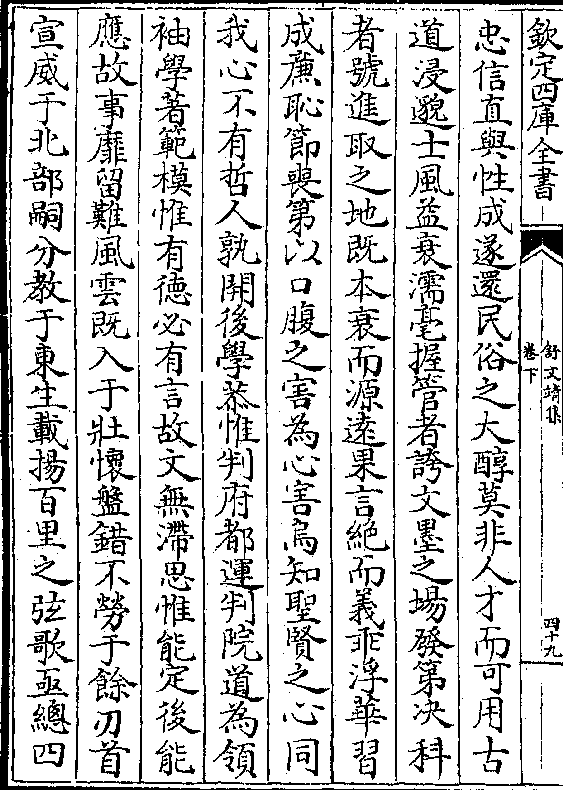 欽定四庫全書
舒文靖集
卷下
四十九
忠信直與性成遂還民俗之大醇莫非人才而可用古
道浸邈士風益衰濡毫握管者誇文墨之場發第决科
者號進取之地既本衰而源遠果言絶而義乖浮華習
成廉恥節喪第以口腹之害為心害烏知聖賢之心同
我心不有哲人孰開後學恭惟判府都運判院道為領
袖學著範模惟有徳必有言故文無滯思惟能定後能
應故事靡留難風雲既入于壯懷盤錯不勞于餘刃首
宣威于北部嗣分教于東生載揚百里之弦歌亟總四